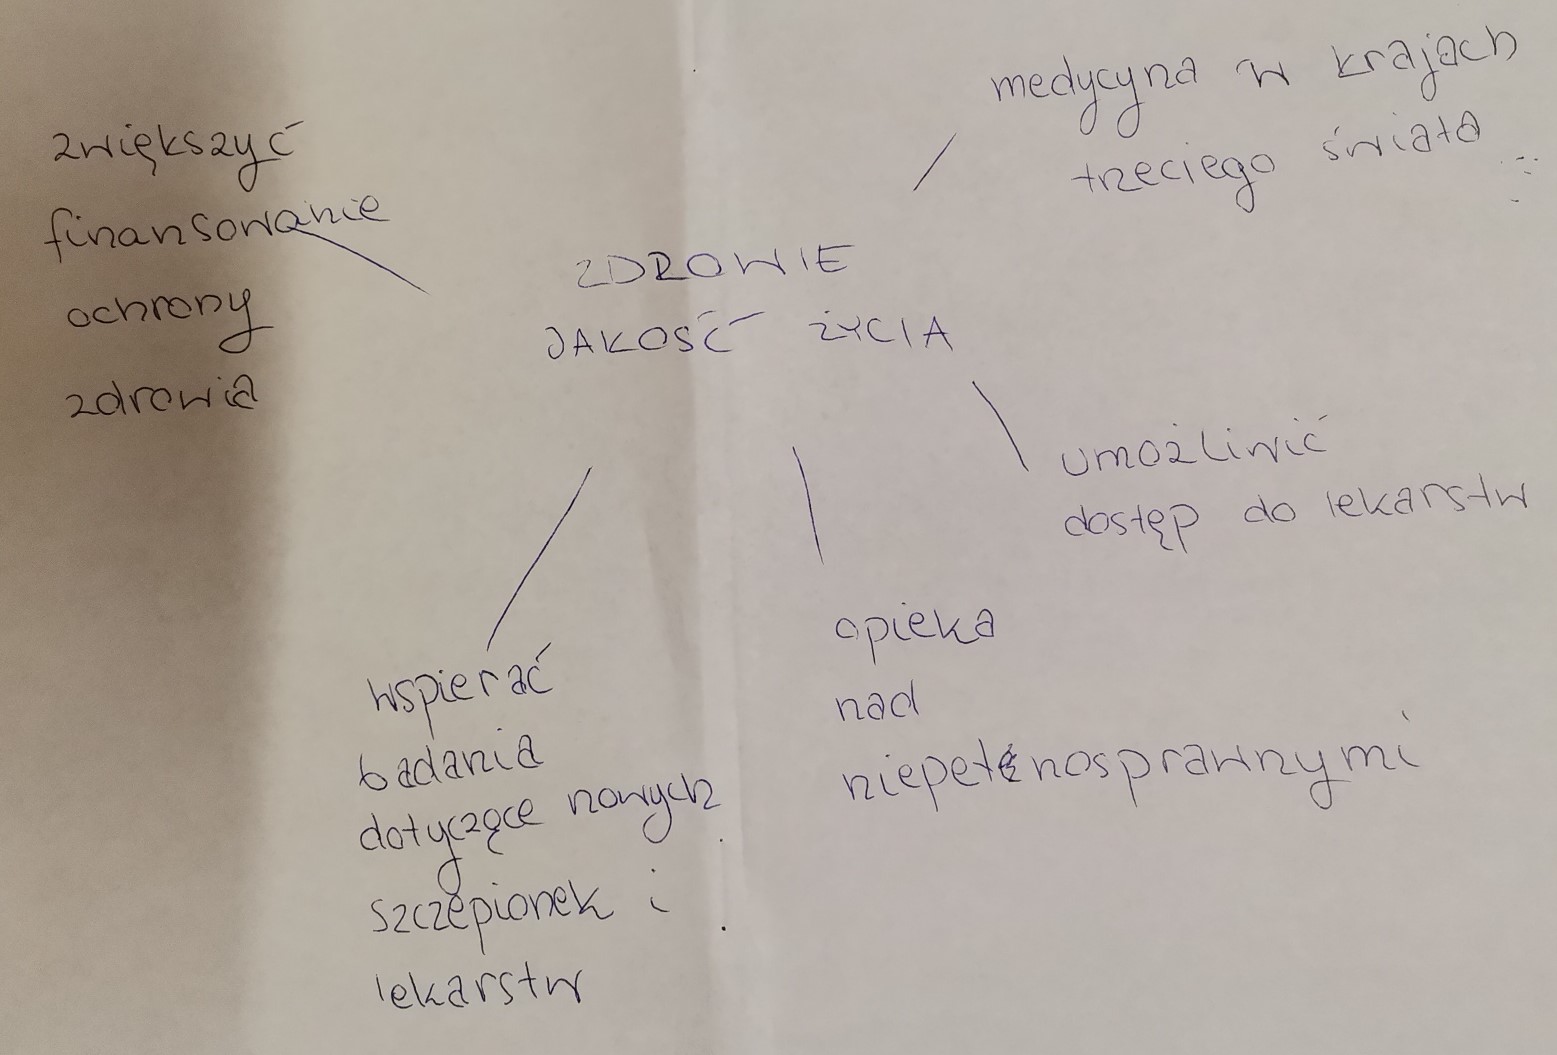 zwiększyć
finansowanie
ochrony
zdrowia
medycyna w krajach
trzeciego świata
ZDROWIE
JAKOŚĆ ŻYCIA
umożliwić
dostęp do lekarstw
wspierać
badania
dotyczące nowych
szczepionek i
lekarstw
opieka
nad
niepełnosprawnymi